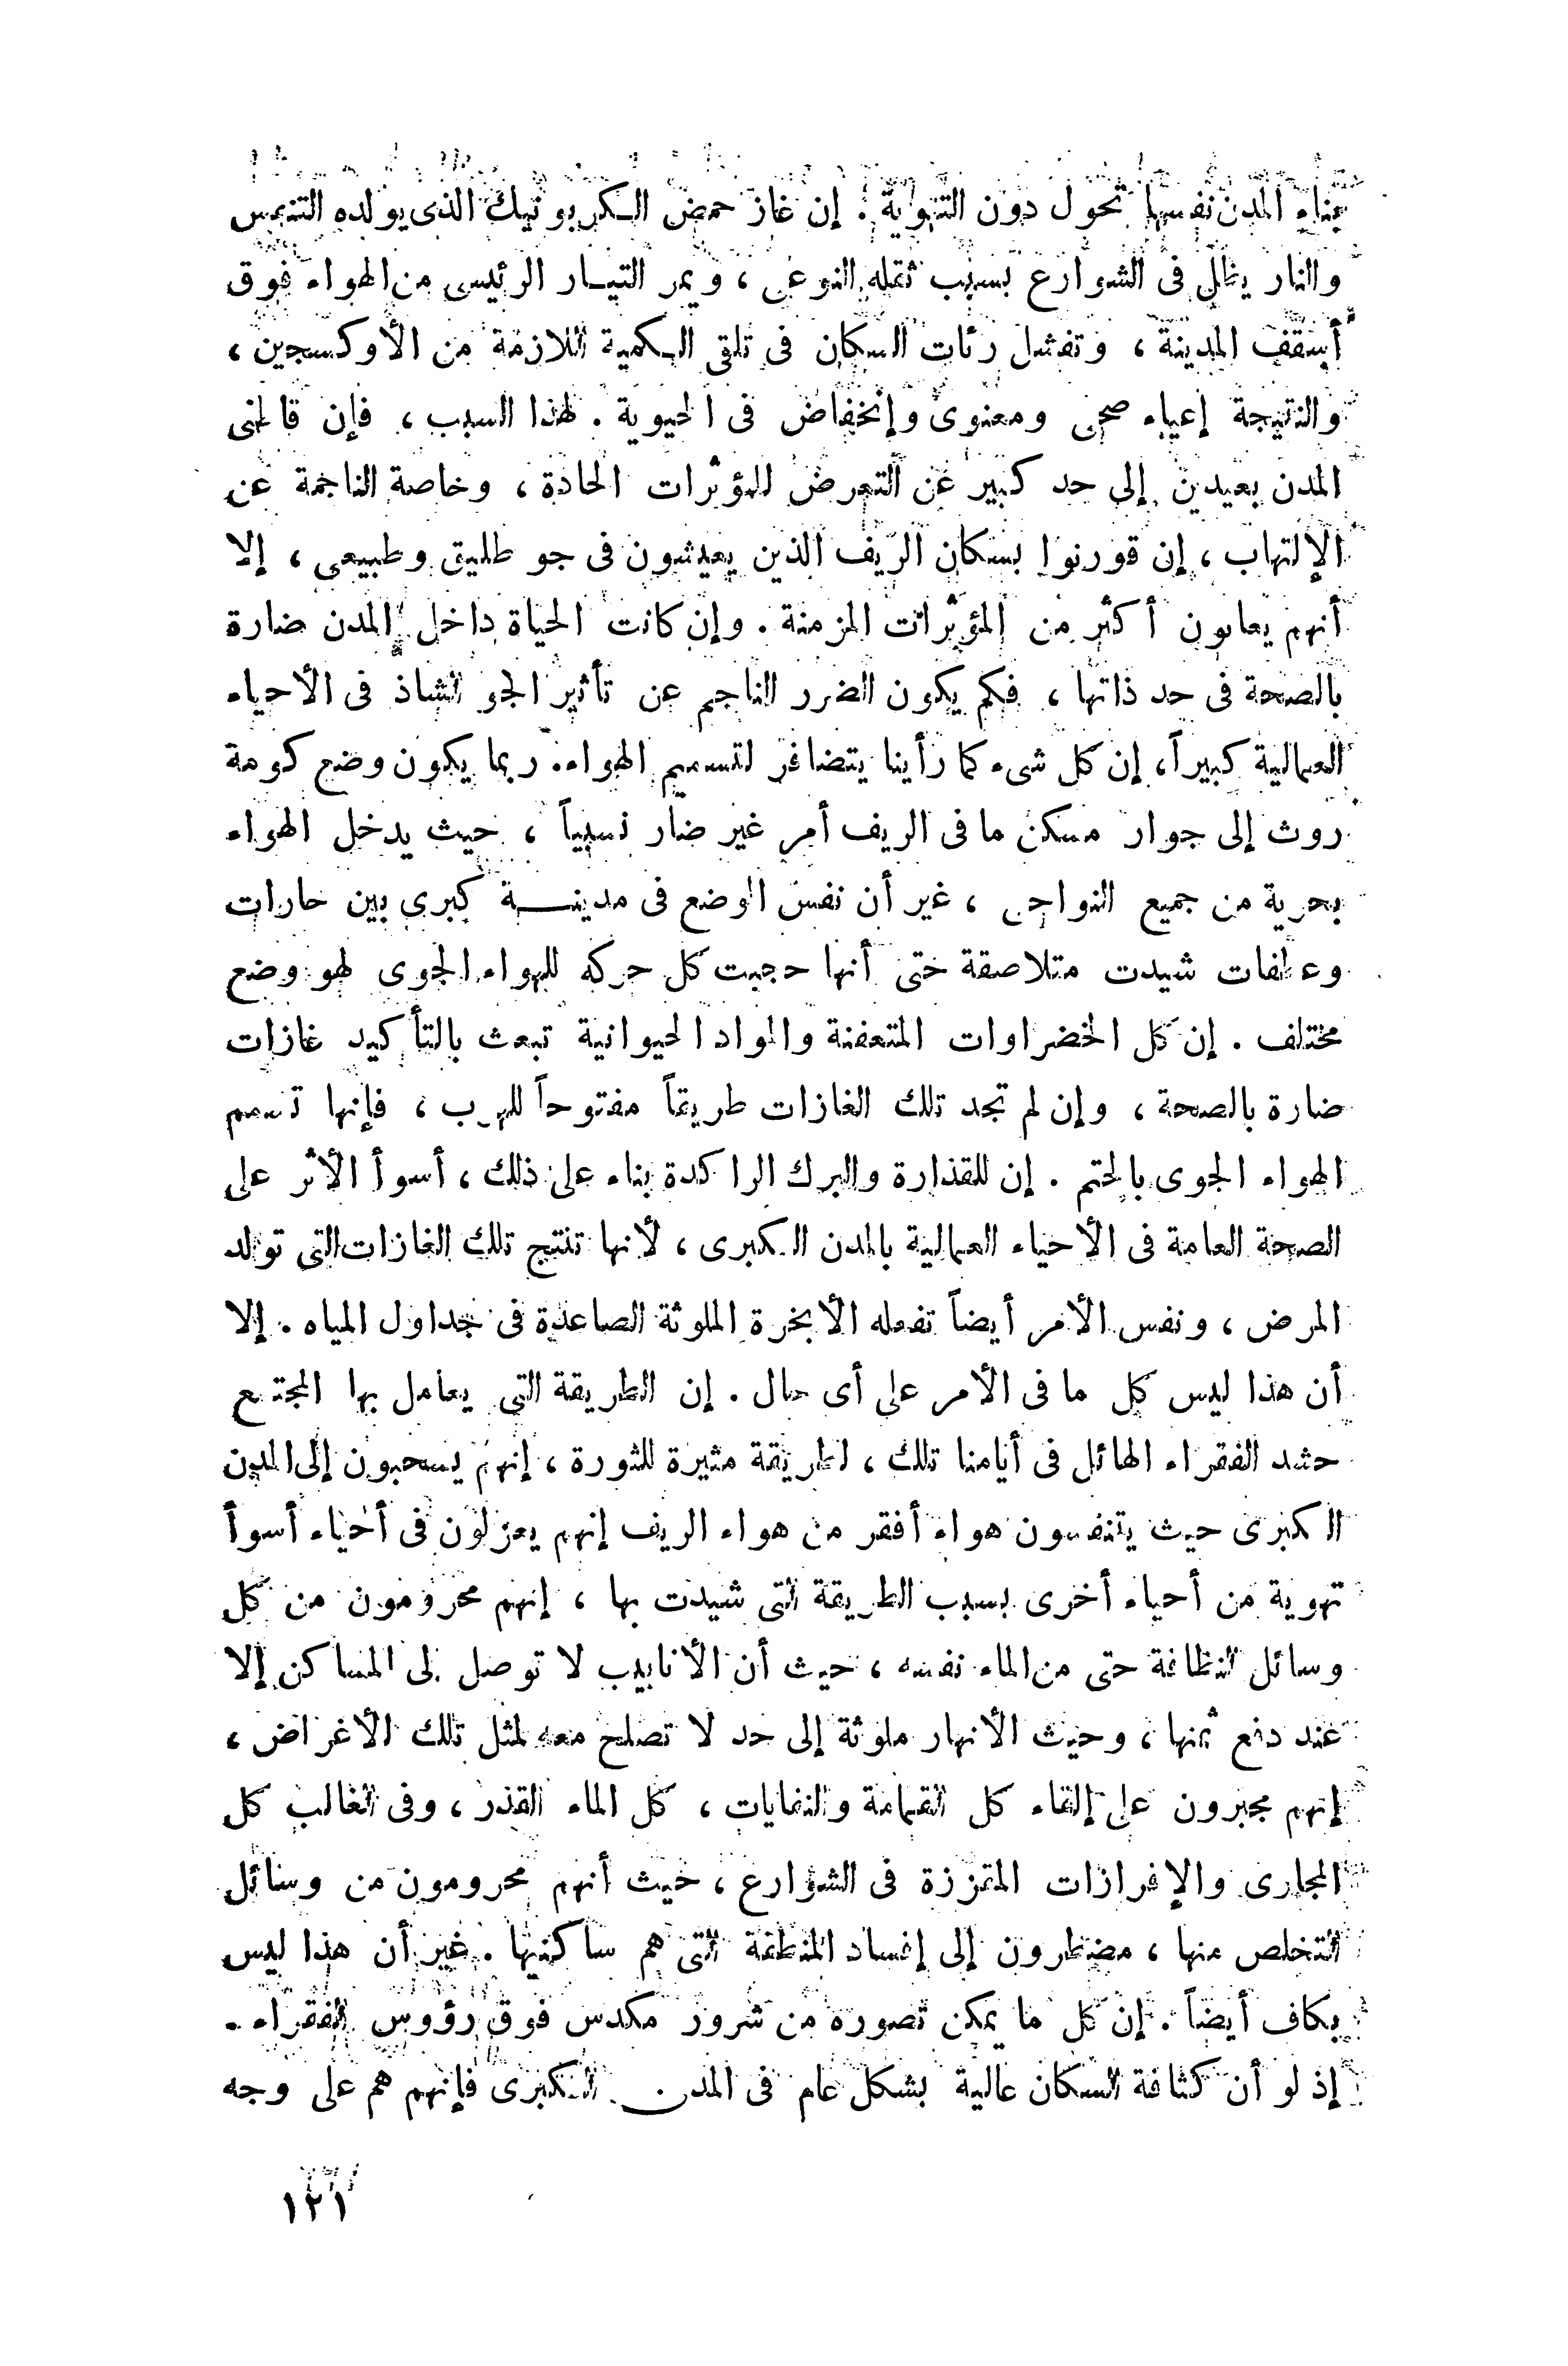 بناء المدن نفسها تحول دون التهوية . إن غاز حمض الكربونيك الذى يولده التنفس
والنار يظل فى الشوارع بسبب ثقله النوعى ، ويمر التيار الرئيسى من الهواء فوق
أسقف المدينة ، وتفشل رئات السكان فى تلقى الكمية اللازمة من الأوكسجين ،
والنتيجة إعياء صحى ومعنوى وإنخفاض فى الحيوية . لهذا السبب ، فإن قاطنى
المدن بعيدين إلى حد كبير عن التعرض للمؤثرات الحادة ، وخاصة الناجمة عن
الإلتهاب ، إن قورنوا بسكان الريف الذين يعيشون فى جو طليق وطبيعى ، إلا
أنهم يعانون أكثر من المؤثرات المزمنة . وإن كانت الحياة داخل المدن ضارة
بالصحة فى حد ذاتها ، فكم يكون الضرر الناجم عن تأثير الجو الشاذ فى الأحياء
العمالية كبيراً ، إن كل شىء كما رأينا يتضافر لتسميم الهواء . ربما يكون وضع كومة
روث إلى جوار مسكن ما فى الريف أمر غير ضار نسبياً ، حيث يدخل الهواء
بحرية من جميع النواحى ، غير أن نفس الوضع فى مدينة كبرى بين حارات
وعطفات شيدت متلاصقة حتى أنها حجبت كل حركه للهواء الجوى لهو وضع
مختلف . إن كل الخضراوات المتعفنة والمواد الحيوانية تبعث بالتأكيد غازات
ضارة بالصحة ، وإن لم تجد تلك الغازات طريقاً مفتوحاً للهرب ، فإنها تسمم
الهواء الجوى بالحتم . إن للقذارة والبرك الراكدة بناء على ذلك ، أسوأ الأثر على
الصحة العامة فى الأحياء العمالية بالمدن الكبرى ، لأنها تنتج تلك الغازات التى تولد
المرض ، ونفس الأمر أيضاً تفعله الأبخرة الملوثة الصاعدة فى جداول المياه . إلا
أن هذا ليس كل ما فى الأمر على أى حال . إن الطريقة التى يعامل بها المجتمع
حشد الفقراء الهائل فى أيامنا تلك ، لطريقة مثيرة للثورة ، إنهم يسحبون إلى المدن
الكبرى حيث يتنفسون هواء أفقر من هواء الريف إنهم يعزلون فى أحياء أسوأ
تهوية من أحياء أخرى بسبب الطريقة التى شيدت بها ، إنهم محرومون من كل
وسائل النظافة حتى من الماء نفسه ، حيث أن الأنابيب لا توصل إلى المساكن إلا
عند دفع ثمنها ، وحيث الأنهار ملوثة إلى حد لا تصلح معه لمثل تلك الأغراض ،
إنهم مجبرون على إلقاء كل القمامة والنفايات ، كل الماء القذر ، وفى الغالب كل
المجارى والإفرازات المتمززة فى الشوارع ، حيث أنهم محرومون من وسائل
التخلص منها ، مضطرون إلى إفساد المنطقة التى هم ساكنيها . غير أن هذا ليس
بكاف أيضاً . إن كل ما يمكن تصوره من شرور مكدس فوق رؤوس الفقراء .
إذ لو أن كثافة السكان عالية بشكل عام فى المدن الكبرى فإنهم هم على وجه
١٢١